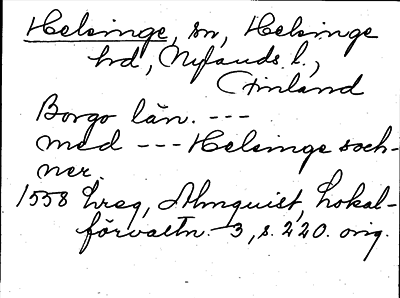 Helsinge, sn, Helsinge
hd, Nylands l.,
Finland
Borgo län. ---
med --- Helsinge soch-
ner.
1558 hreg, Almquist, Lokal-
förvaltn. 3, s. 220. orig.